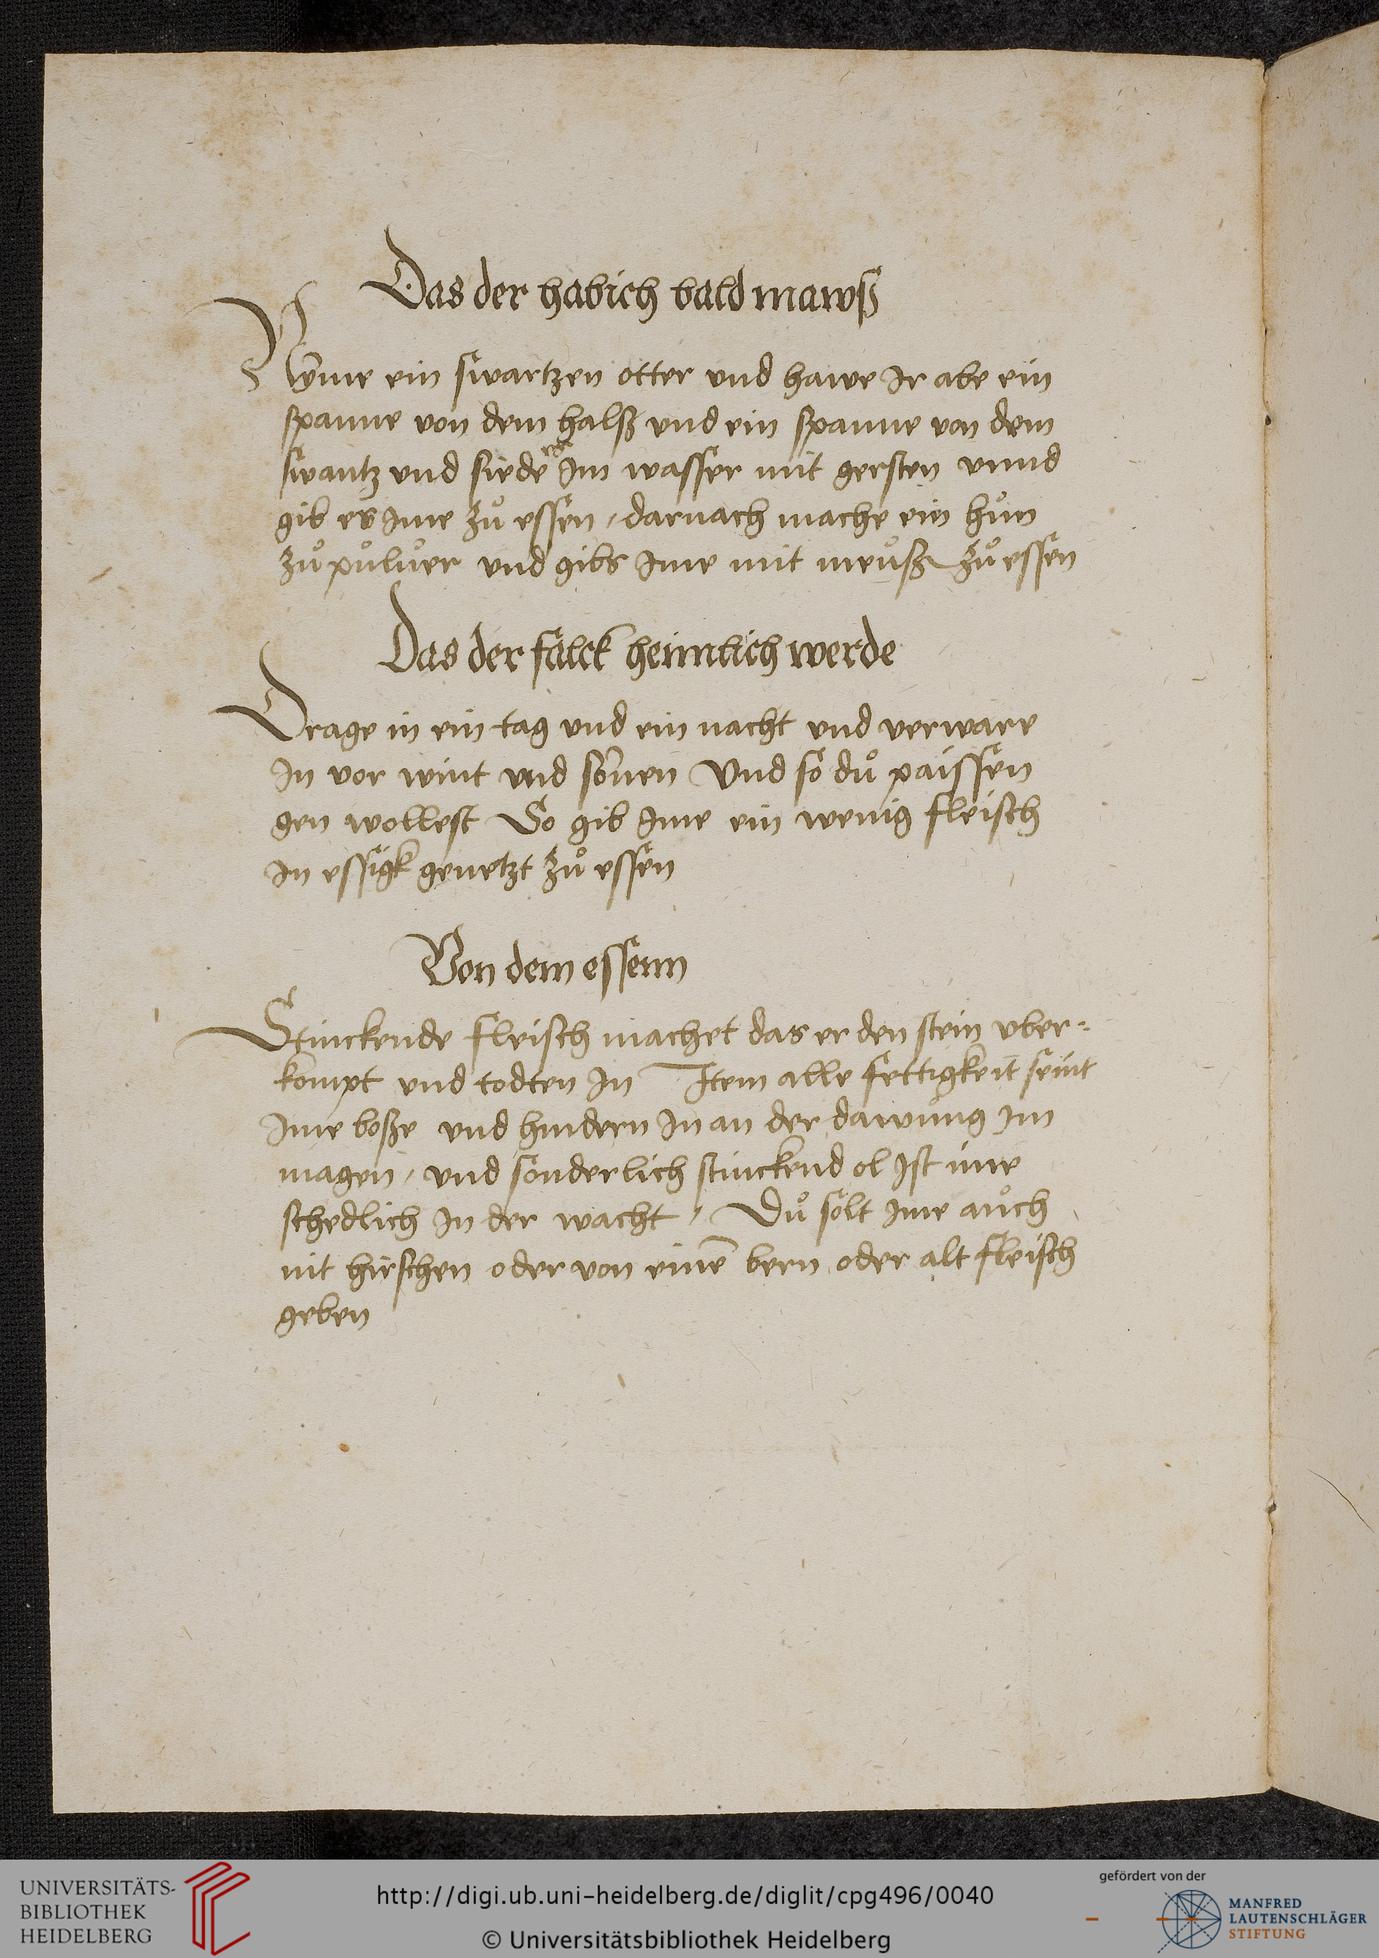 Das der habich bald mawß
Nÿme ein swartzen otter vnd hawe Ir abe ein
spanne von dem halß vnd ein spanne von dem
swantz vnd siede Im wasser mit gersten vnnd
gib es Ime zů essen / darnach mache ein hůn
zů půluer vnd gibs Ime mit meůß zů essen
Das der falck heimlich werde
Trage in ein tag vnd ein nacht vnd verware
In vor wint vnd sonnen Vnd so dů paissen
gen wollest So gib Ime ein wenig fleisch
In essigk genetzt zů essen
Von dem essenn
Stinckende fleisch machet das er den stein vber-
kompt vnd todten In Item alle fettigkeit seint
Ime boße vnd hindern In an der dawůng Im
magen / vnd sonderlich stinckend ol Ist ime
schedlich In der wacht / Dů solt Ime aůch
nit hirschen oder von einē bern oder alt fleisch
geben
UNIVERSITÄTS-
BIBLIOTHEK
HEIDELBERG
http://digi.ub.uni-heidelberg.de/diglit/cpg496/0040
© Universitätsbibliothek Heidelberg
gefördert von der
MANFRED
LAUTENSCHLÄGER
STIFTUNG